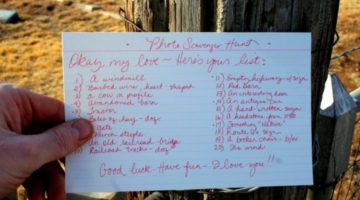 Photo Scavenger Hunt
Okay, my love ~ Here's your list:
1) A windmill
2) Barbed wire, heart-shaped
3) A cow in profile
4) Abandoned barn
Bales of hay - dog
gate
Church steeple
An old railroad bridge
Railroad tracks - dog
11) Empty highway w/ sign
12) Red barn
13) An interesting door
14) An antique
15) A hand-written sign
16) A headstone from
17) Something "Native"
18) Route sign
19) A broken chair - b/w
20) The wind
Good luck - Have fun - I love you!!